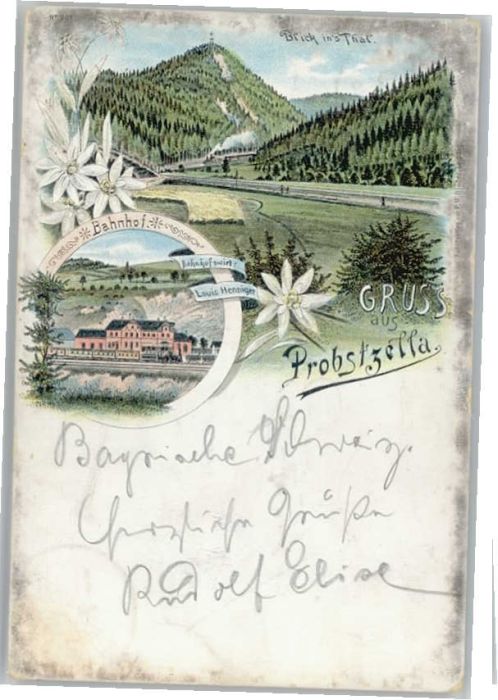 Blick in's Thal.
Bahnhof.
Bahnhofswirt
Louis Henniger
GRUSS
aus
Probstzella.
Bayrische Schweiz.
Herzliche Grüße
Rudolf Elise